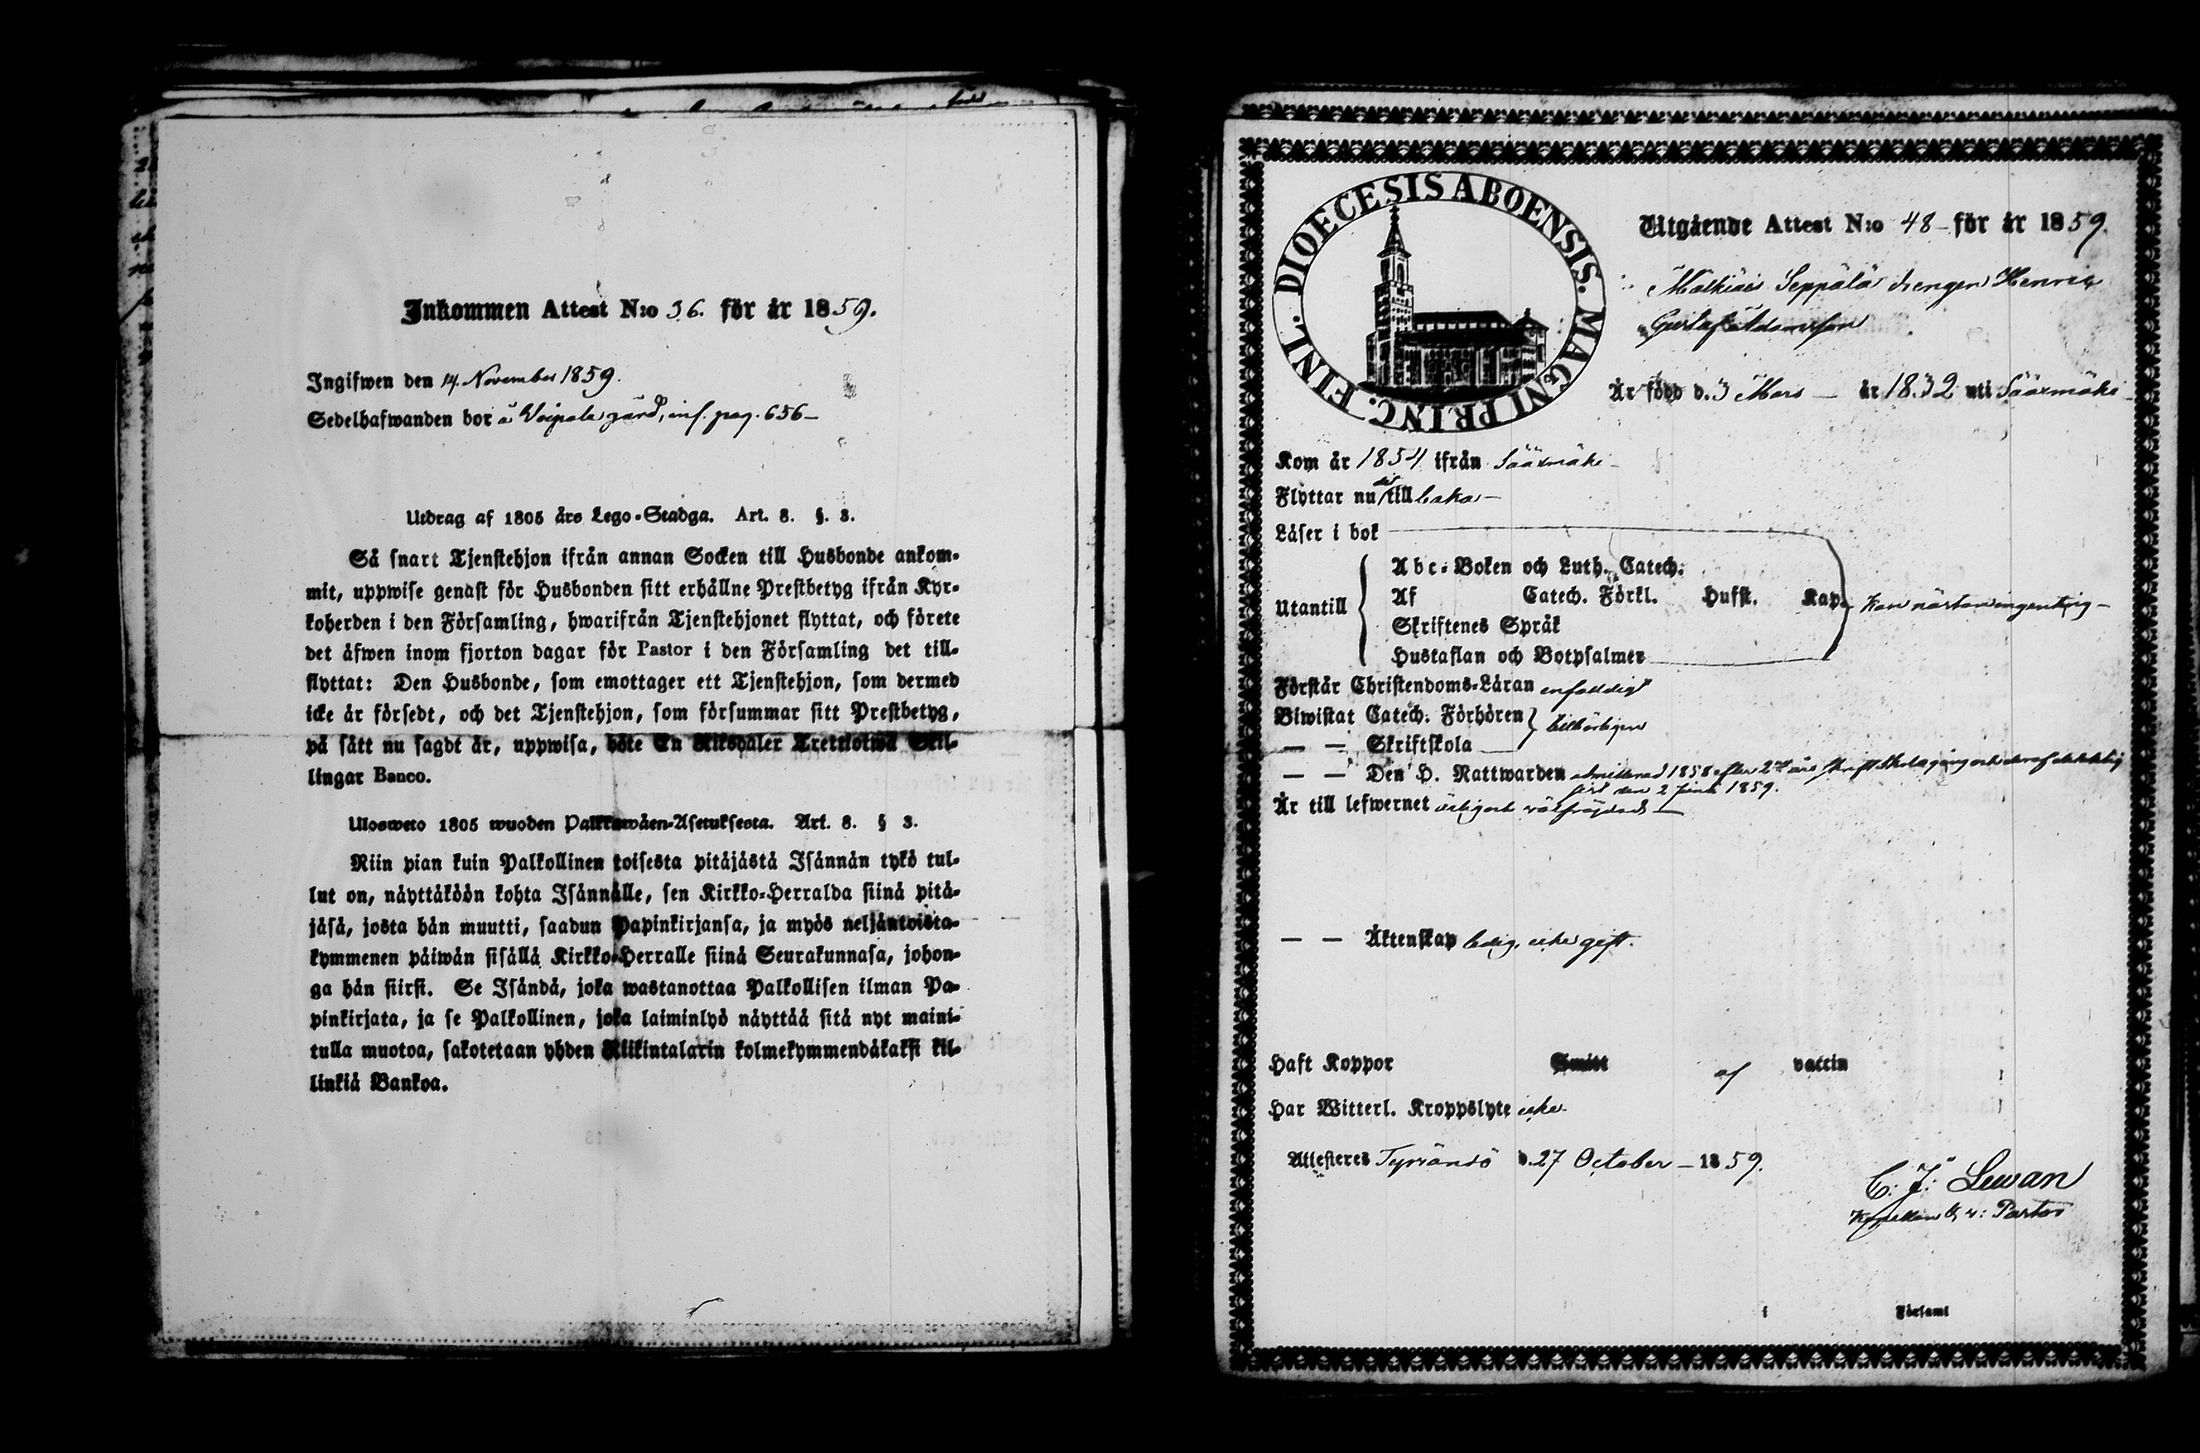 Inkommen Attest N:o 36. för år 1859.
Ingifwen den 14. November 1859.
Sedelhafwanden bor å Woipala gård, inf. pag. 656 –
Utdrag af 1805 års Lego-Stadga. Art. 8. §. 3.
Så snart Tjenstehjon ifrån annan Socken till Husbonde ankom-
mit, uppwise genast för Husbonden sitt erhållne Prestbetyg ifrån Kyr-
koherden i den Församling, hwarifrån Tjenstehjonet flyttat, och förete
det äfwen inom fjorton dagar för Pastor i den Församling det till-
flyttat: Den Husbonde, som emottager ett Tjenstehjon, som dermed
icke är försedt, och det Tjenstehjon, som försummar sitt Prestbetyg,
på sätt nu sagdt är, uppwisa, böte En Riksdaler Trettiotwå Skil-
lingar Banco.
Ulosweto 1805 wuoden Palkkawäen-Asetuksesta. Art. 8. § 3.
Niin pian kuin Palkollinen toisesta pitäjästä Isännän tykö tul-
lut on, näyttäköön kohta Isännälle, sen Kirkko-Herralda siinä pitä-
jäsä, josta hän muutti, saadun Papinkirjansa, ja myös neljäntoista-
kymmenen päiwän sisällä Kirkko-Herralle siinä Seurakunnasa, johon-
ga hän siirsi. Se Isändä, joka wastanottaa Palkollisen ilman Pa-
pinkirjata, ja se Palkollinen, joka laiminlyö näyttää sitä nyt maini-
tulla muotoa, sakotetaan yhden Riikintalarin kolmekymmendäkaksi kil-
linkiä Bankoa.
DIOECESIS ABOENSIS. MAGNI PRINC. FINL.
Utgående Attest N:o 48 – för år 1859.
Mathias Seppälä drengen Henric
Gustaf Adamsson
Är född d. 3 Mars – år 1832 uti Sääxmäki –
Kom år 1854 ifrån Sääxmäki –
Flyttar nu dit tillbaka –
Läser i bok
Utantill
Abc-Boken och Luth. Catech.
Af Catech. Förkl. Husst. Kap. kan nästan ingenting –
Skriftenes Språk
Hustaflan och Botpsalmer
Förstår Christendoms-Läran enfaldigt
Biwistat Catech. Förhören tillbörligen
— — Skriftskola
— — Den H. Nattwarden admitterad 1858 efter 2 års Skriftskolegång och deraf delaktig
sist den 2 Junii 1859.
Är till lefwernet ärlig och wälfrejdad –
— — Äktenskap ledig, icke gift.
Haft Koppor Smitt af vaccin
Har Witterl. Kroppslyte icke
Attesteres Tyrväntö d. 27 October – 1859.
C. J. Lewan
Kapellan & v: Pastor
i Församl